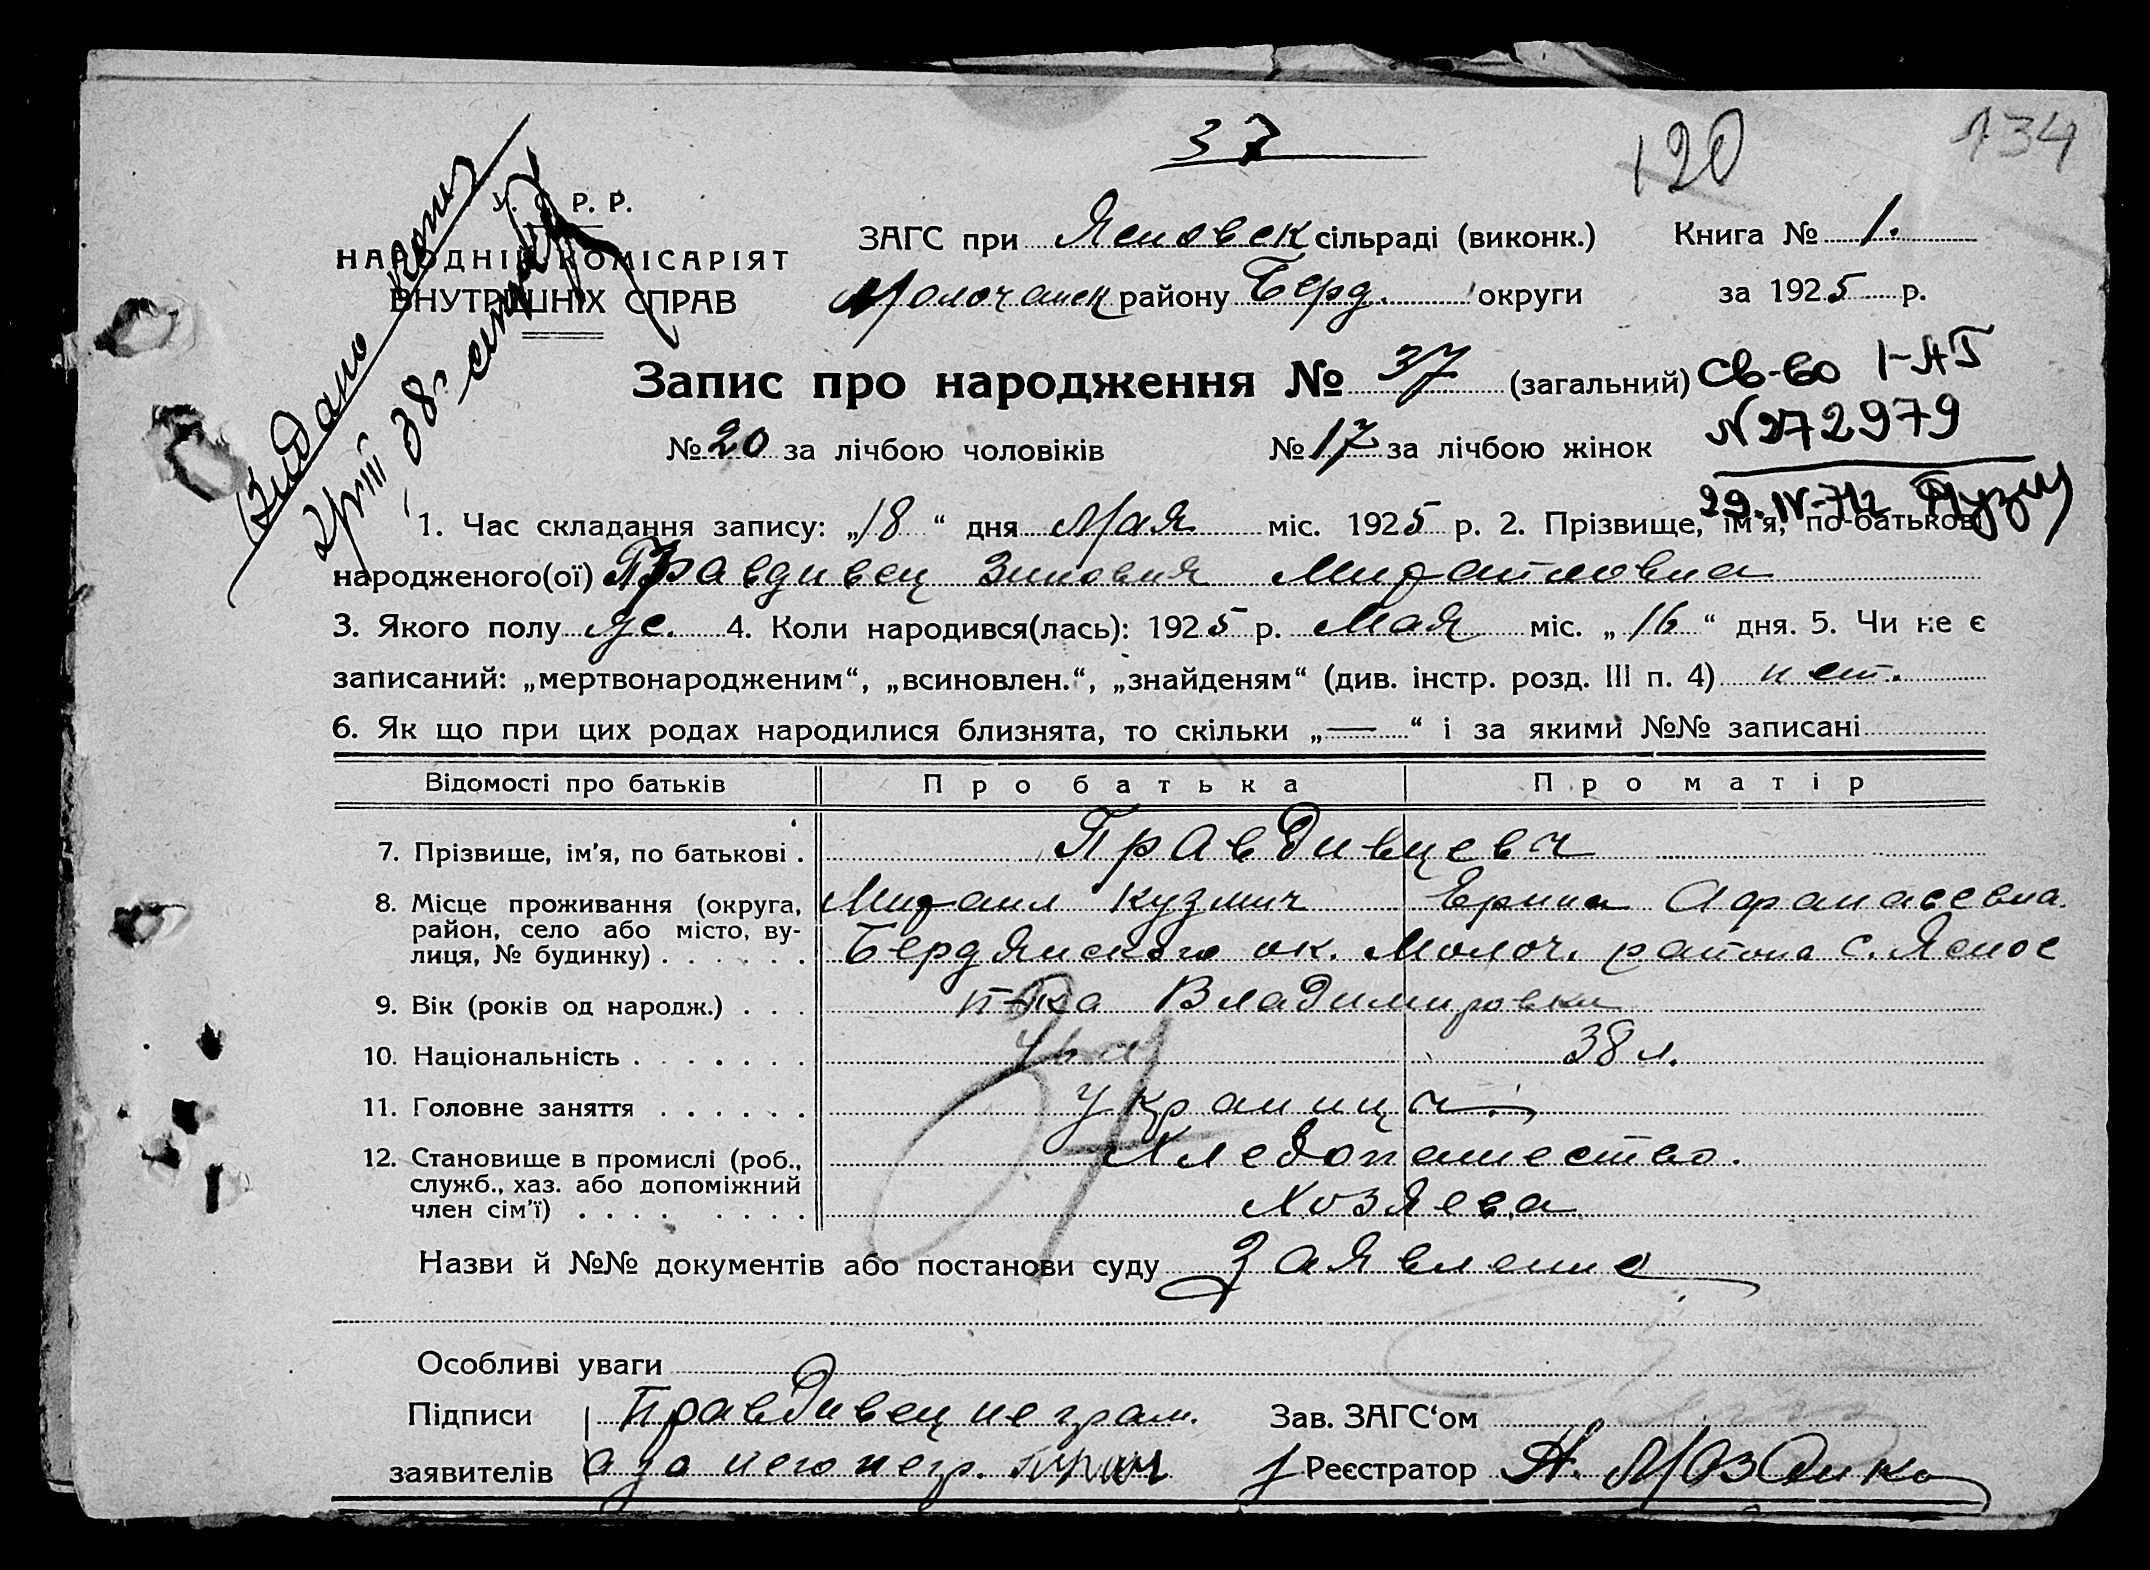 37
120
134
У. С. Р. Р.
НАРОДНІЙ КОМІСАРІЯТ
ВНУТРІШНІХ СПРАВ
Видано копію
ЗАГС при Ясновск сільраді (виконк.) Книга № 1.
Молочанск району Берд. округи за 1925 р.
Запис про народження № 37 (загальний)
Св-во І-АГ
№ 272979
№ 20 за лічбою чоловіків № 17 за лічбою жінок
1. Час складання запису: „18“ дня Мая міс. 1925 р. 2. Прізвище, ім'я, по-батькові
народженого(ої) Правдивец Зиновия Михайловна
3. Якого полу же. 4. Коли народився(лась): 1925 р. Мая міс. „16“ дня. 5. Чи не є
записаний: „мертвонародженим“, „всиновлен.“, „знайденям“ (див. інстр. розд. III п. 4) нет.
6. Як що при цих родах народилися близнята, то скільки „—“ і за якими №№ записані
Відомості про батьків Про батька Про матір
7. Прізвище, ім'я, по батькові . Правдивцева
8. Місце проживання (округа, Михаил Кузмич Ерина Афанасевна.
район, село або місто, ву-
лиця, № будинку) . . . . . . Бердянского ок. Молоч. района с. Ясное
9. Вік (років од народж.) . . . п-ка Владимировка
10. Національність . . . . . . . 38 л.
11. Головне заняття . . . . . . украинц
12. Становище в промислі (роб., Хлебопашество.
служб., хаз. або допоміжний
член сім'ї) . . . . . . . . Хозяева
37
Назви й №№ документів або постанови суду Заявление
Особливі уваги
Підписи Правдивец не грам. Зав. ЗАГС‘ом
заявителів а за него негр. Реєстратор